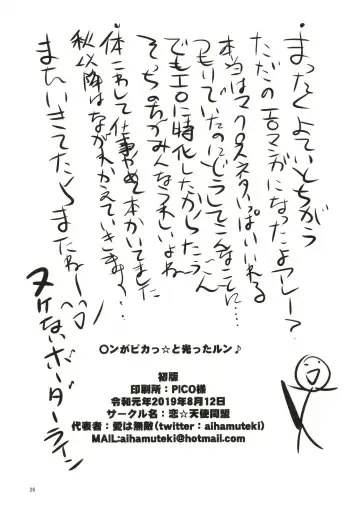 まったくよていとちがう
ただのエロマンガになったよアレー？
本当はマクロスネタいっぱいいれる
つもりでいたのにどうしてこんなことに…
でもエロに特化したからたぶん
そっちの方がみんなうれしいよね
体こわして仕事やめて本かいてました
秋以降はながれかえていきます…
またいきてたらまたねー
ヌケないボーダーライン
〇ンがピカっ☆と光ったルン♪
初版
印刷所：PICO様
令和元年2019年8月12日
サークル名：恋☆天使同盟
代表者：愛は無敵(twitter：aihamuteki)
MAIL:aihamuteki@hotmail.com
26